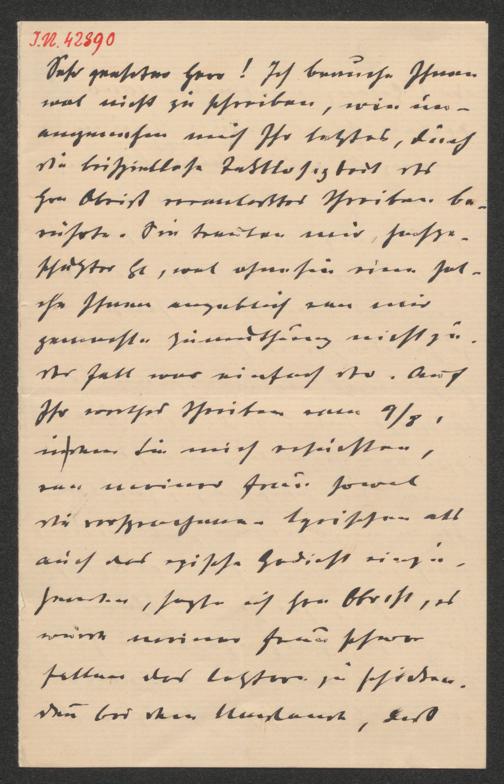 J.N. 42890
Sehr geehrter Herr! Ich brauche Ihnen
wol nicht zu schreiben, wie un-
angenehm mich Ihr letztes, durch
die beispiellose Taktlosigkeit des
Hrn Obrist veranlasstes Schreiben be-
rührte. Sie trauten mir, hochge-
schätzter H, wol ohnehin eine sol-
che Ihnen angeblich von mir
gemachte Zumuthung nicht zu.
Der Fall war einfach der. Auf
Ihr werthes Schreiben vom 9/8,
in dem Sie mich ersuchten,
von meiner Frau sowol
die versprochenen lyrischen als
auch das epische Gedicht einzu-
senden, sagte ich Hrn Obrist, es
würde meiner Frau schwer
fallen das letztere zu schicken.
Denn bei dem Umstande, daß